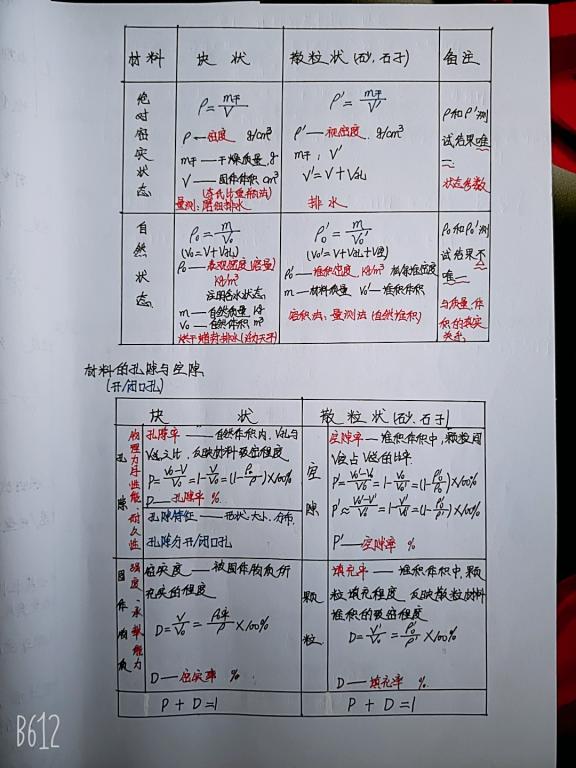 材料 块 状 散粒状(砂、石子) 备注
绝对密实状态
ρ=m干/V
ρ—密度 g/cm³
m干—干燥质量,g
V—固体体积 cm³
(李氏比重瓶法)
量测:磨细排水
ρ'=m干/V'
ρ'—视密度 g/cm³
m干; V'
V'=V+V孔
排水
ρ和ρ'测
试结果唯
一;
状态参数
自然状态
ρ₀=m/V₀
(V₀=V+V孔)
ρ₀—表观密度(容量)
kg/m³
注明含水状态
m—自然质量 kg
V₀—自然体积 m³
ρ₀'=m/V₀'
(V₀'=V+V孔+V空)
ρ₀'—堆积密度,kg/m³
m—材料质量 V₀'—堆积体积
容积法:量测法(自然堆积)
ρ₀和ρ₀'测
试结果不
唯一
与质量、体
积的真实
关系
材料的孔隙与空隙
(开/闭口孔)
块 状 散粒状(砂、石子)
孔隙
物理力学性能、耐久性
孔隙率——自然体积内,V孔与
V总之比,反映材料致密程度
P=(V₀-V)/V₀=1-V/V₀=(1-ρ₀/ρ)×100%
D—孔隙率 %
孔隙特征——形状、大小、分布,
孔隙分开/闭口孔
空隙
空隙率—堆积体积中,颗粒间
V空占V总的比率
P'=(V₀'-V₀)/V₀'=1-V₀/V₀'=(1-ρ₀'/ρ₀)×100%
P'≈(V₀'-V')/V₀'=1-V'/V₀'=(1-ρ₀'/ρ')×100%
P'—空隙率 %
固体物质
强度、承载能力
密实度—被固体物质所
充实的程度
D=V/V₀=ρ₀干/ρ×100%
D—密实率 %
颗粒
填充率—堆积体积中,颗
粒填充程度,反映散粒材料
堆积的致密程度
D=V'/V₀'=ρ₀'/ρ'×100%
D—填充率 %
P+D=1 P+D=1
B612